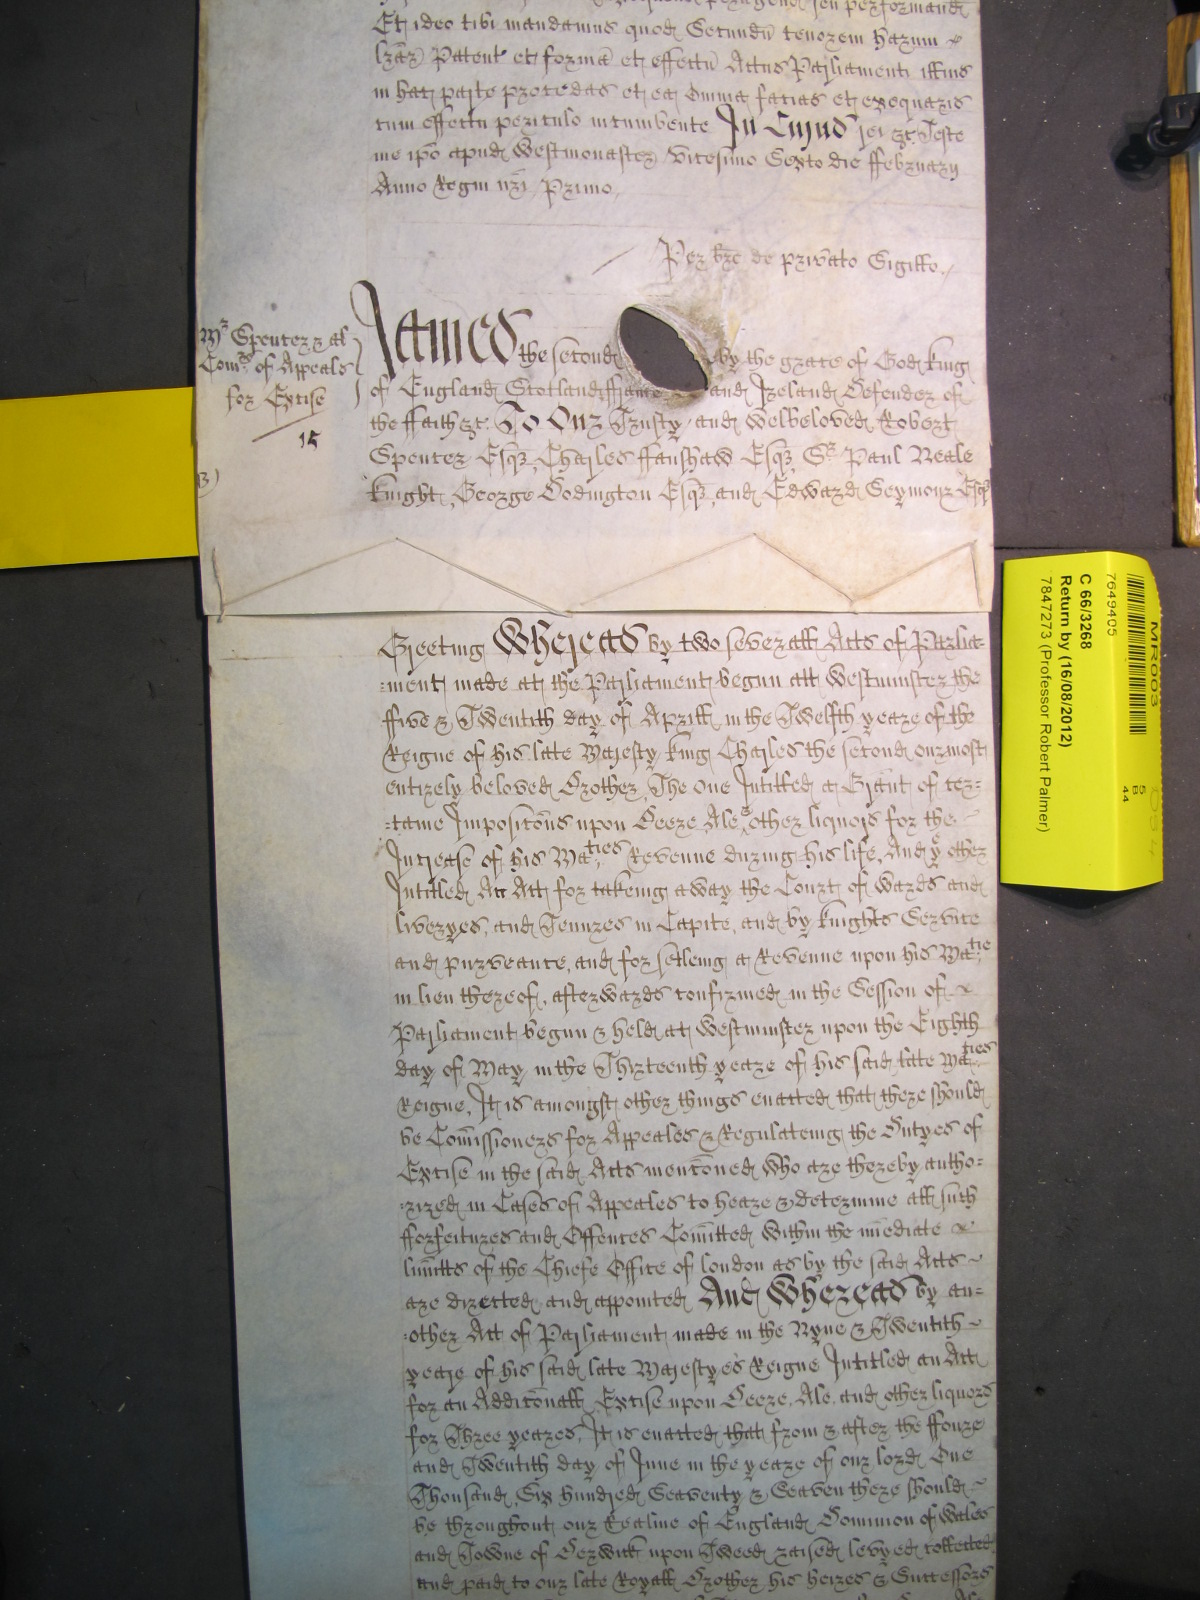 Et ideo tibi mandamus quod Secundū tenorem harum
lrār Patent et formā et effectū Actus Parliamenti illius
in hac parte procedas et ea omnia facias et exequaris
cum effectu periculo incumbente In Cujus rei &c Teste
me ipō apud Westmonaster vicesimo Sexto die ffebruary
Anno Regni nrī Primo
Per brē de privato Sigillo
Mr Spencer & al
Comrs of Appeals
for Excise
15
James the second by the grace of God king
of England Scotland ffrance and Ireland Defender of
the ffaith &c To Our Trusty and welbeloved Robert
Spencer Esqr Charles ffanshaw Esqr Sr Paul Neale
knight George Dodington Esqr and Edward Seymour Esqr
Greeting Whereas by two severall Acts of Parlia-
=ment made at the Parliament begun att Westminster the
ffive & Twentith day of Aprill in the Twelfth yeare of the
Reigne of his late Majesty king Charles the second our most
entirely beloved Brother, The one Intitled a Grant of cer=
=taine Impositōns upon Beere Ale & other liquors for the
Increase of his Maties Revenue during his life, And ye other
Intitled An Act for takeing away the Court of wards and
liveryes, and Tenures in Capite, and by knights Service
and purveance, and for setleing a Revenue upon his Matie
in lieu thereof, afterwards confirmed in the Session of
Parliament begun & held at Westminster upon the Eighth
day of May in the Thirteenth yeare of his said late Maties
Reigne, It is amongst other things enacted that there should
be Com̄issioners for Appeales & Regulateing the Dutyes of
Excise in the said Acts mencōned who are thereby autho=
=rized in Cases of Appeales to heare & determine all such
fforfeitures and Offences Com̄itted within the im̄ediate
limitts of the Chiefe Office of London as by the said Acts
are directed and appointed And Whereas by an=
=other Act of Parliament made in the Nyne & Twentith
yeare of his said late Majestyes Reigne Intitled an Act
for an Additōnall Excise upon Beere, Ale and other liquors
for Three yeares, It is enacted that from & after the ffoure
and Twentith day of June in the yeare of our lord One
Thousand Six hundred Seaventy & Seaven there should
be throughout our Realme of England Dominion of Wales
and Towne of Berwick upon Tweed raised levyed collected
and paid to our late Royall Brother his heires & Successors
MR003
7649405
C 66/3268
Return by (16/08/2012)
7847273 (Professor Robert Palmer)
5
B
44